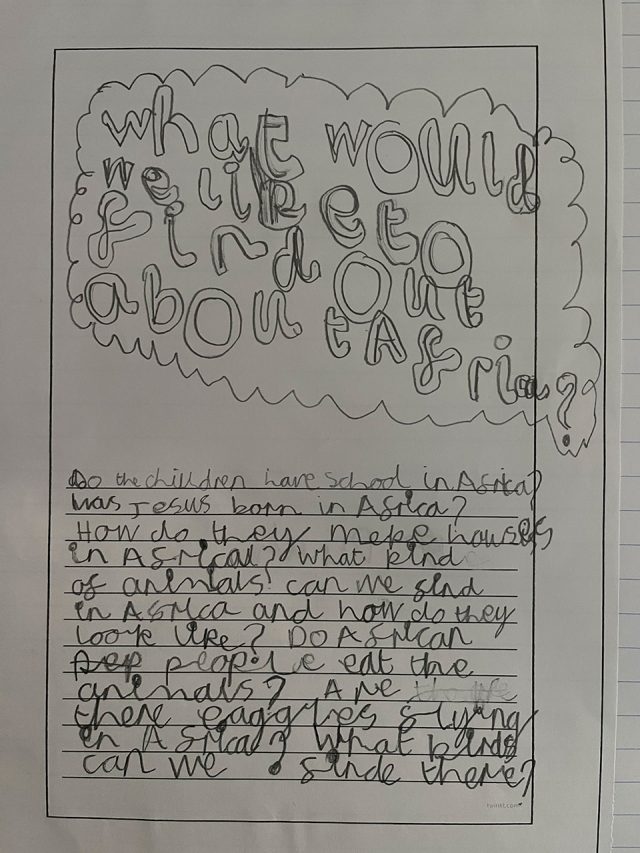 what would
we like to
find
about Out
t Africa?
Do the chilldren have school in Africa?
was Jesus born in Africa?
How do they meke houses
in Africal? What kind
of animals can we find
in Africa and how do they
look like? Do African
Pep people eat the
animals? Are the life
there eaggles flying
in Africa? What birds
can we finde there?
twinkl.com